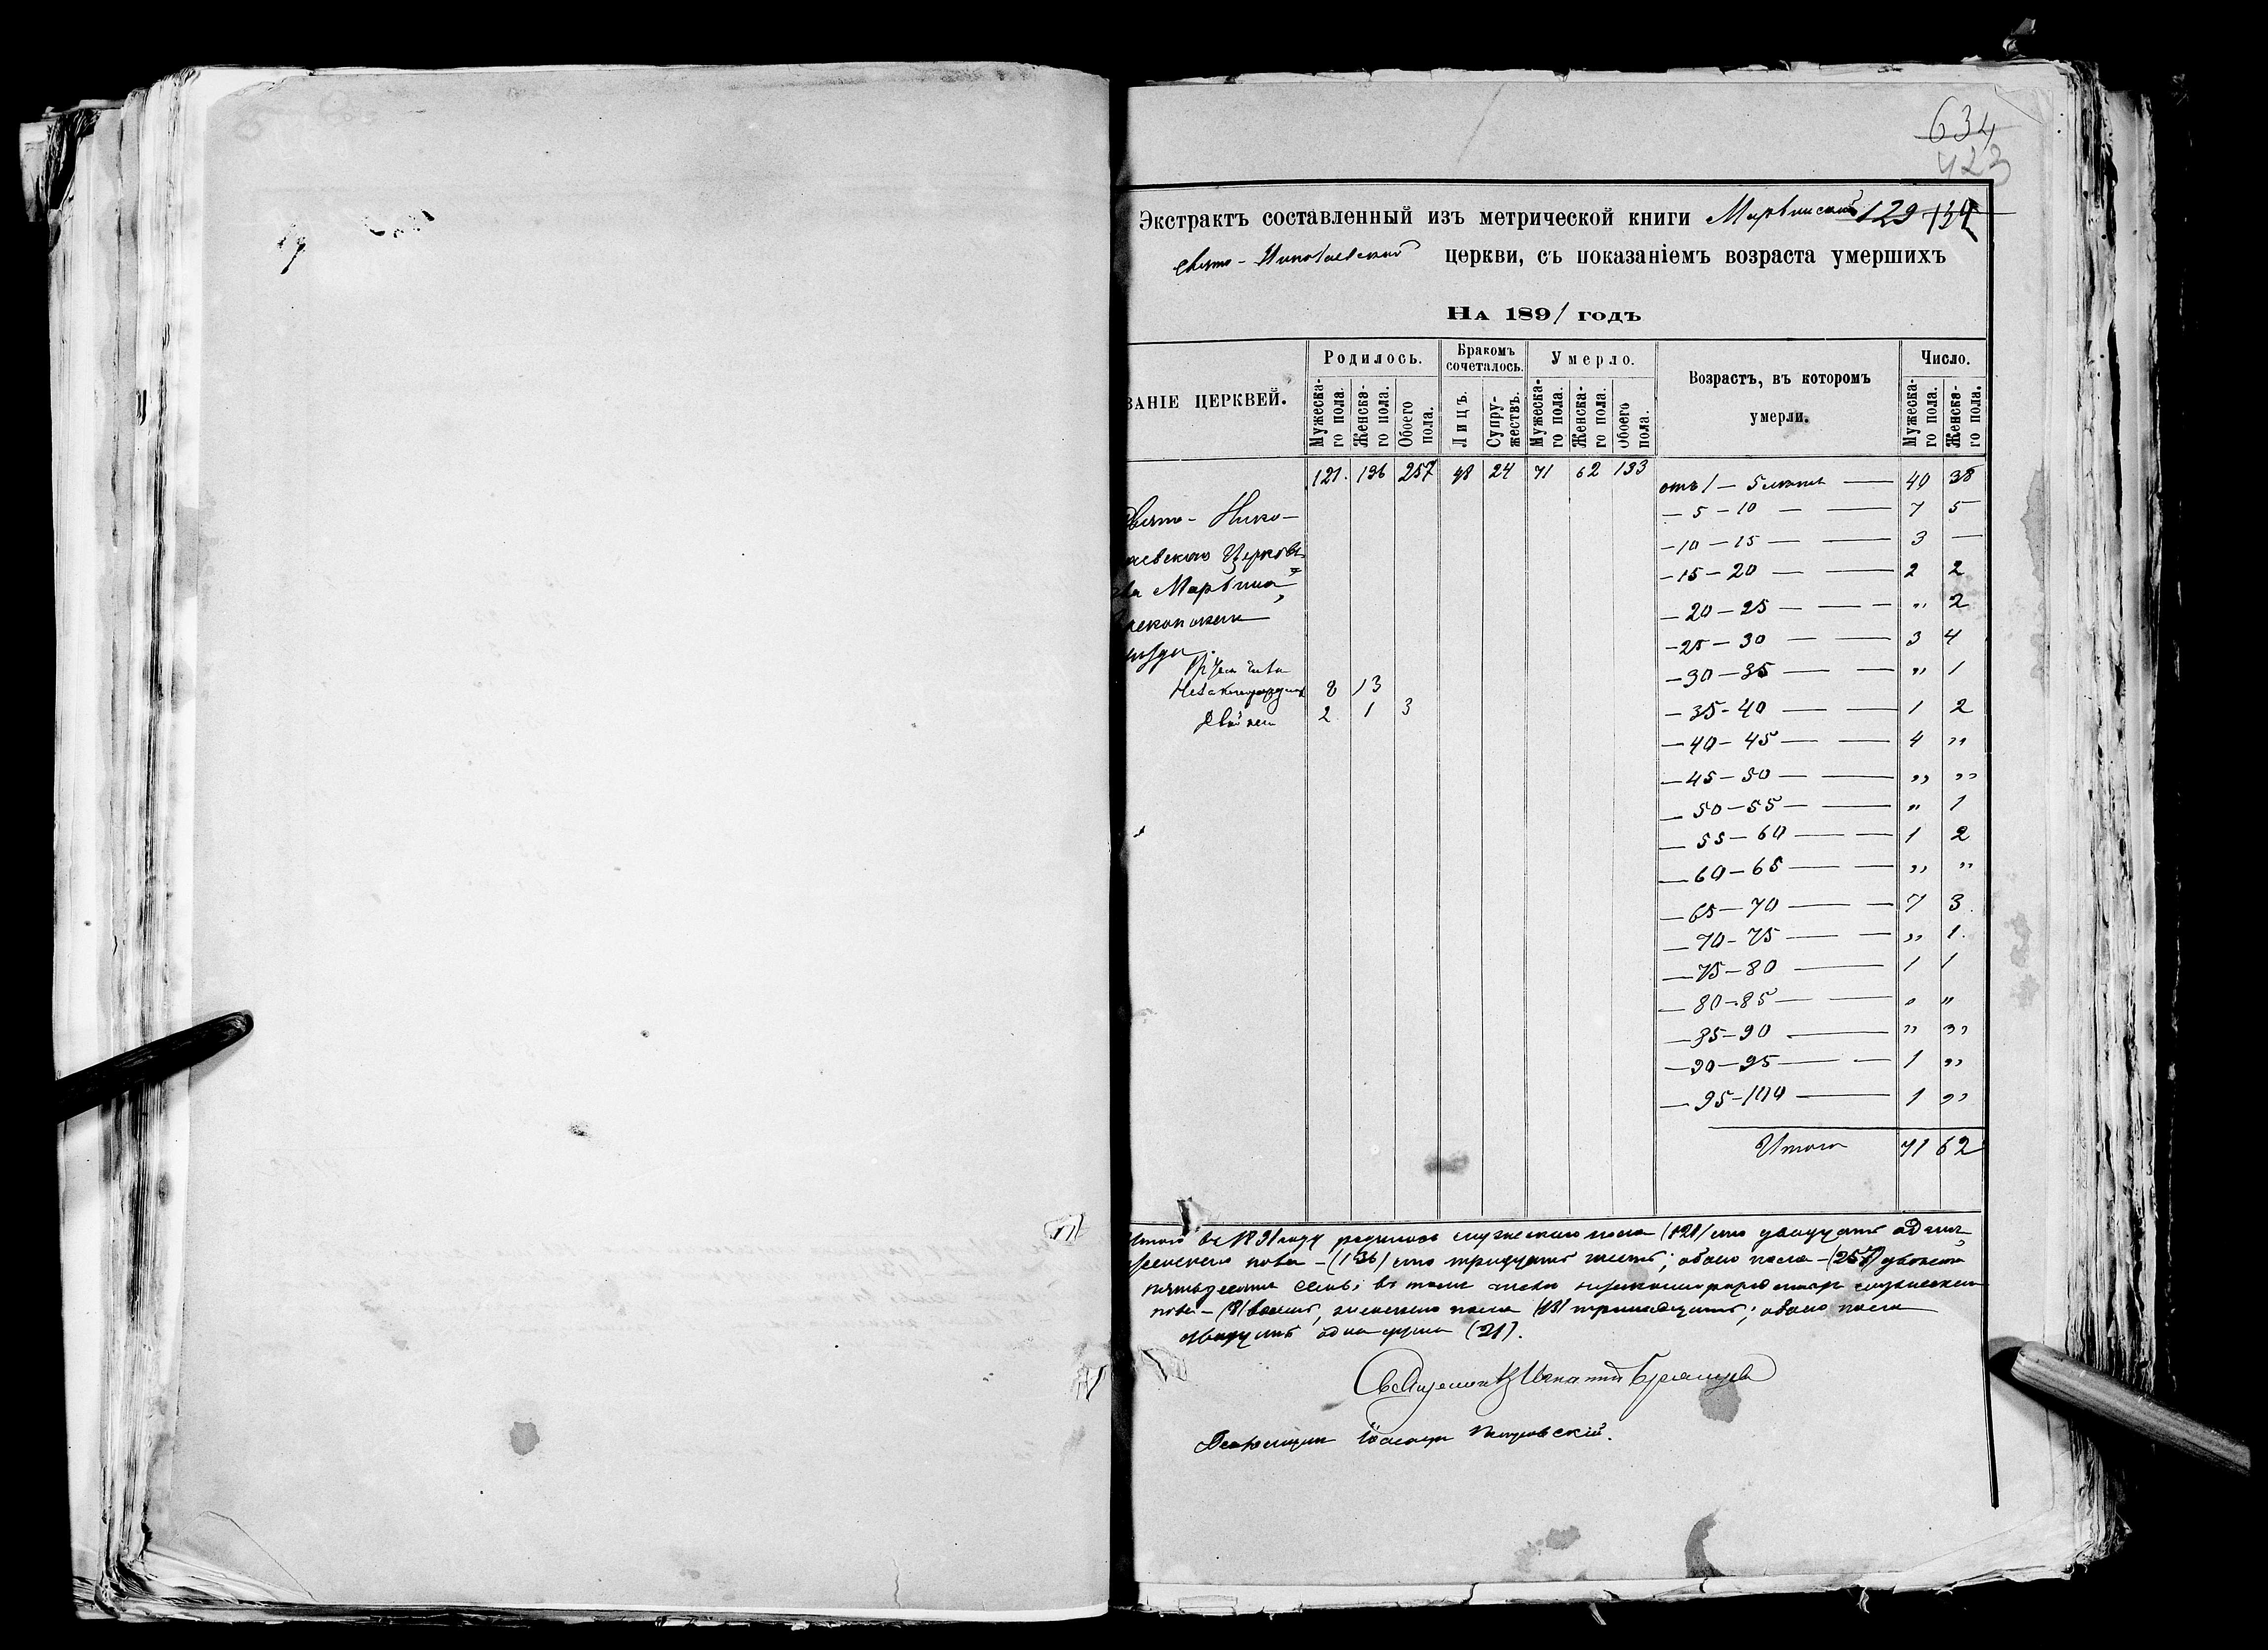 634
423
Экстрактъ составленный изъ метрической книги Марвинской 129 134
Свято-Николаевской церкви, съ показаніемъ возраста умершихъ
На 1891 годъ
ВАНІЕ ЦЕРКВЕЙ.
Родилось.
Бракомъ сочеталось.
Умерло.
Возрастъ, въ которомъ умерли.
Число.
Мужеска-го пола.
Женска-го пола.
Обоего пола.
Лицъ.
Супру-жествъ.
Мужеска-го пола.
Женска-го пола.
Обоего пола.
Мужеска-го пола.
Женска-го пола.
121. 136 257 48 24 71 62 133
отъ 1 — 5 — 40 38
Свято- Нико-
— 5 — 10 — — 7 5
лаевской Церкви
— 10 — 15 — — 3 —
Марвина
— 15 — 20 — — 2 2
— 20 — 25 — — — „ 2
— 25 — 30 — — 3 4
8 13
— 30 — 35 — — „ 1
Двойней 2 1 3
— 35 - 40 — — 1 2
— 40 - 45 — — 4 „
— 45 — 50 — — „ „
— 50 — 55 — — „ 1
— 55 — 60 — — 1 2
— 60 — 65 — — „ „
— 65 — 70 — — 7 3
— 70 - 75 — — „ 1.
— 75 — 80 — 1 1
— 80 - 85 — — „ „
— 85 - 90 — „ „
— 90 — 95 — — 1 „
— 95 - 100 — 1 „
Итого 71 62
Итого въ 1891 году родилось мужескаго пола (121) сто двадцать одинъ
женскаго пола — (136) сто тридцать шесть; обоего пола — (257) двѣсти
пятьдесятъ семь; въ томъ числѣ мужескаго
пола — (8) восемь, женскаго пола (13) тринадцать; обоего пола
двадцать одна душа (21).
Священникъ